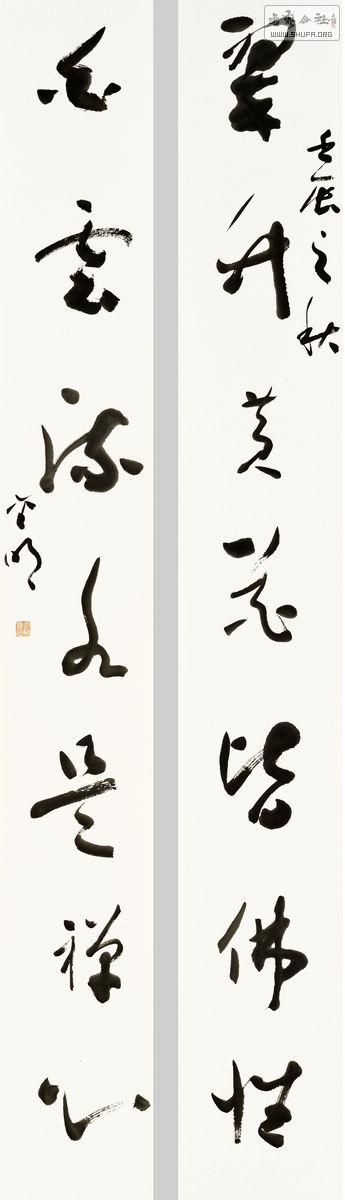 翠竹黄花皆佛性
壬辰之秋
白云流水是禅心
金明
书法公社
WWW.SHUFA.ORG